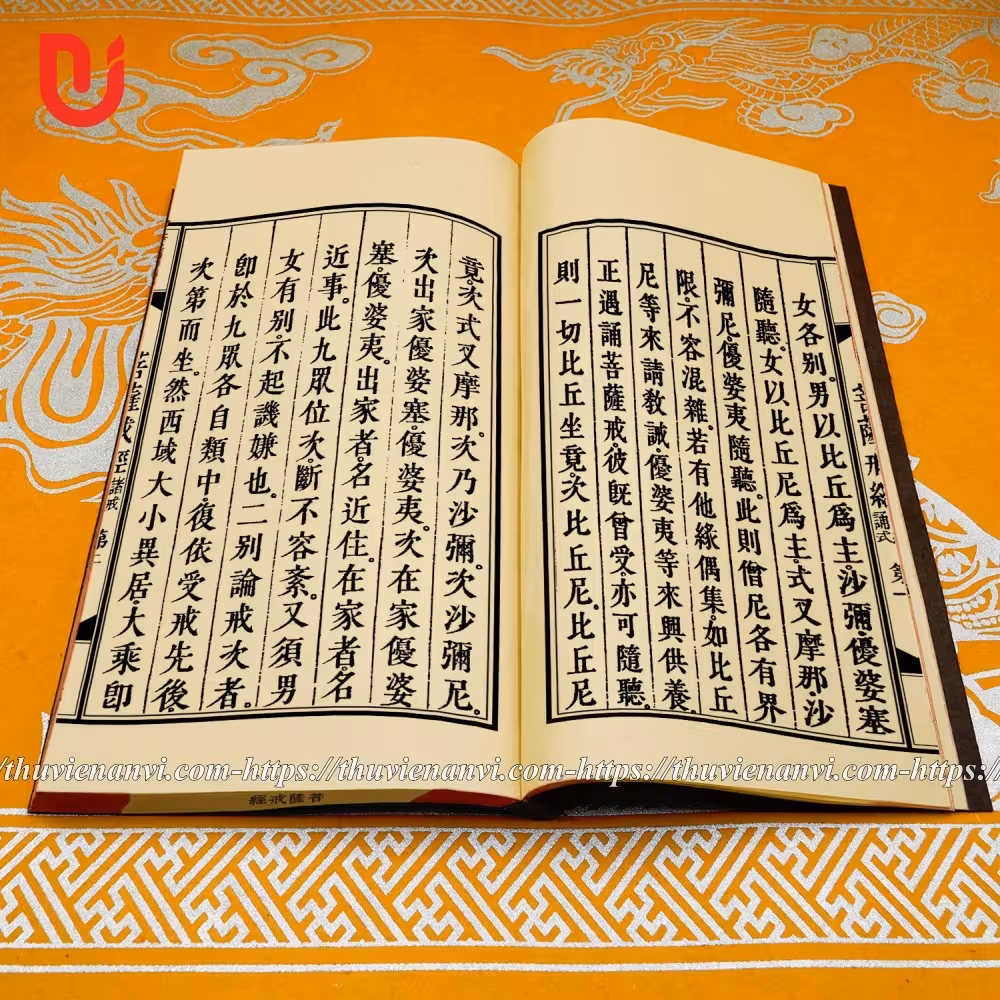 菩薩戒經 誦式
女各別。男以比丘爲主。沙彌優婆塞
隨聽。女以比丘尼爲主。式叉摩那。沙
彌尼。優婆夷隨聽。此則僧尼各有界
限。不容混雜。若有他緣偶集。如比丘
尼等來請敎誡。優婆夷等來興供養。
正遇誦菩薩戒。彼旣曾受。亦可隨聽。
則一切比丘坐竟。次比丘尼。比丘尼
竟。次式叉摩那。次乃沙彌。次沙彌尼。
次出家優婆塞。優婆夷。次在家優婆
塞。優婆夷。出家者名近住。在家者名
近事。此九眾位次。斷不容紊。又須男
女有别。不起譏嫌也。二別論戒次者。
卽於九眾各自類中。復依受戒先後。
次第而坐。然西域大小異居。大乘卽
諸戒
經戒薩菩
//thuvienanvi.com-https://thuvienanvi.com-https://thuvienanvi.com-https://